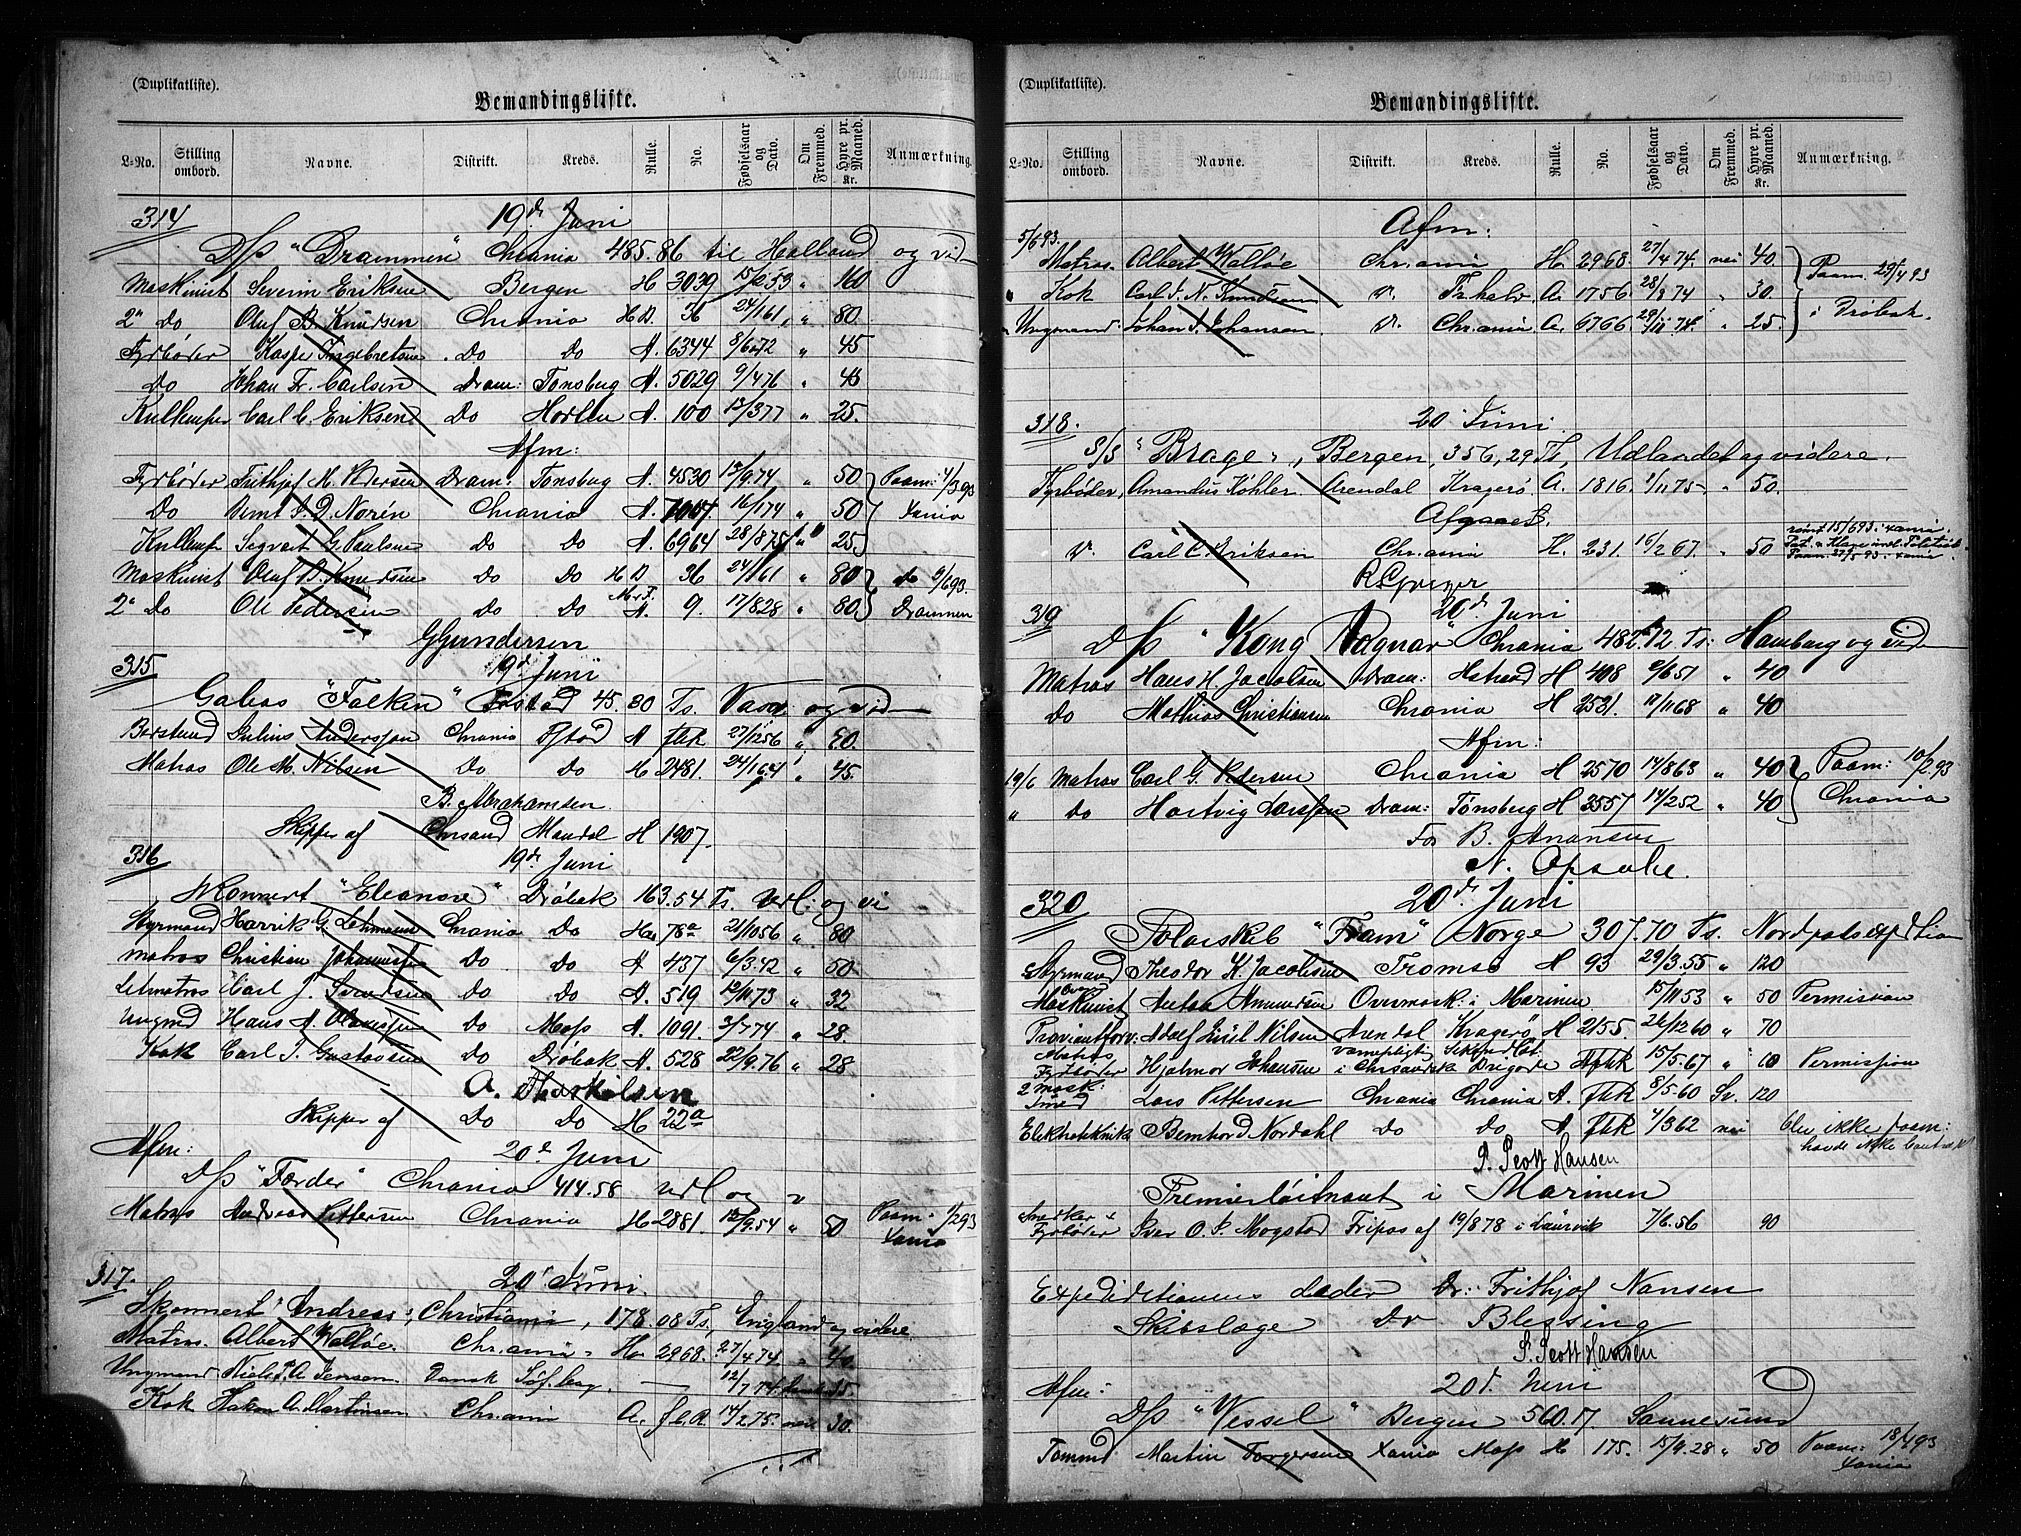 (Duplikatliste).
Bemandingsliste.
L-No. Stilling ombord. Navne. Distrikt. Kreds. Rulle. No. Fødselsaar og Dato. Om Fremmed. Hyre pr. Maaned. Kr. Anmærkning.
314 19de Juni
D/s "Drammen" Chrania 485.86 til Holland og vid
Maskinist Severin Eriksen Bergen H 3039 15/2 53 " 160
2n Do Oluf B. Knudsen Chrania H D. 36 24/1 61 " 80
Fyrbøder Kasp. Ingebretsen Do Do A. 6344 8/6 72 " 45
Do Johan Fr. Carlsen Dram: Tonsberg A. 5029 9/4 76 " 45
Kullemper Carl C. Eriksen Do Horten A. 100 13/3 77 " 25.
Afm:
Fyrbøder Frithjof M. Pedersen Dram: Tonsberg A. 4530 12/9 74 " 50 Paam: 4/3 93
Do Bernt S. D. Norén Chrania A. 7007 16/1 74 " 50 Xania
Kullemp Sigvart G. Paulsen Do Do A. 6964 28/8 75 " 25
Maskinist Oluf B. Knudsen Do Do H D. 36 24/1 61 " 80 do 6/6 93.
2n Do Ole Pedersen Do Do A 9. 17/8 28 " 80 Drammen
G Gundersen
315 19d Juni
Galias "Falken" Fstad 45.80 Ts. Vasa og vid
Bestmand Julius Andersson Chrania Fstad A flR 27/12 56 " 50.
Matros Ole M. Nilsen Do Do H 2481. 24/1 64 " 45.
B. Abrahamsen
Skipper af Chrsand Mandal H 1907.
316 19de Juni
Skonnert "Eleanore" Drøbak 163.54 Ts. Udl. og vi
Styrmand Henrik G. Lehmann Chrania Do H 78a 21/10 56 " 80
Matros Christian Johannesen Do Do A 437 6/3 42 " 50
Letmatros Carl J. Syversen Do Do A. 519 12/11 73 " 32
Ungmd Hans A. Olaussen Do Moss A. 1091. 3/7 74 " 28.
Kok Carl J. Gustavsen Do Drøbak A. 528 22/9 76 " 28
A. Therkelsen
Skipper af Do Do H 22a
Afm: 20de Juni
D/s "Færder" Chrania 414.58 Udl og v
Matros Andreas Pettersen Chrania H 2881. 12/9 54 " 50 Paam: 1/2 93 Xania
317. 20' Juni.
Skonnert "Andreas", Christiania, 178.08 Ts, England og videre.
Matros. Albert Walløe Chr.ania H 2968. 27/4 74 " 40.
Ungmand Niels F. A. Jensen. Dansk Søf.bog. — 12/7 74 dansk 35
Kok Hakon A. Martinsen Chr.ania A. flR. 14/2 75. nei 30.
(Duplikatliste).
Bemandingsliste.
L-No. Stilling ombord. Navne. Distrikt. Kreds. Rulle. No. Fødselsaar og Dato. Om Fremmed. Hyre pr. Maaned. Kr. Anmærkning.
Afm:
5/6 93. Matros. Albert Walløe Chr.ania H. 2968. 27/4 74. nei 40. Paam. 25/4 93
" Kok Carl J. N. Knudsen d. Fr.hald A. 1756. 28/8 74 " 30. i Drøbak.
" Ungmand Johan J. Johansen d. Chr.ania A. 6766. 29/11 74 " 25.
318. 20' Juni.
S/S "Brage", Bergen, 356,29 Ts, Udlandet og videre.
Fyrbøder, Amandus Køhler Arendal Kragerø A. 1816. 1/11 75. " 50.
Afgaaet.
d. Carl C. Eriksen Chr.ania H. 231. 16/2 67. " 50 rømt 15/6 93 i Xania.
Paam. 27/5 93 i Xania
319 20d Juni
D/s "Kong Ragnar" Chrania 482.72 Ts: Hamburg og vid
Matros Hans H. Jacobsen Dram: Hstrand H 408 2/6 51 " 40
Do Mathias Christiansen Chrania H 2521. 17/11 68 " 40
Afm:
19/6 Matros Carl G. Pedersen Chrania H 2570 14/8 63 " 40 Paam: 10/2 93
" Do Hartvig Larssen Dram: Tønsberg H 3557 14/2 52 " 40 Chrania
For B. Anansen
N. Opsahe.
320 20d Juni
Polarskib "Fram" Norge 307.70 Ts. Nordpolsexpedition
Styrmand Theodor K. Jacobsen Tromsø H 93 29/3.55 " 120
Maskinist Anton Amundsen Overmask: i Marinen 15/11 53 " 50 Permission
Proviantforv: Adolf Emil Nilsen Arendal Kragerø H 2155 26/12 60 " 70
Matros Fyrbøder Hjalmar Johansen vernepligtig Sekondløt. i Chrsandsk Brigade A flR 15/5.67 " 10 Permission
2 mask: Smed Lars Pettersen Chrania Chrania A. flR 8/5.60 Sv. 120
Elektrotekniker Bernhard Nordahl Do do A flR 4/3 62 nei blev ikke paam: havde ikke
S. Scott Hansen
Premierløitnant i Marinen
Snedker & Fyrbøder Iver O. J. Mogstad Fripas af 19/8 78 i Laurvik 7/6.56 90
Expeditionens Leder Dr: Frithjof Nansen
Skibslæge Dr Blessing
S. Scott Hansen
Afm: 20d. Juni
D/s "Vessel" Bergen 560.17. Sannesund
Tømmd Martin Torgersen Xania Moss H 175. 15/9.28 " 50 Paam: 18/4 93 Xania